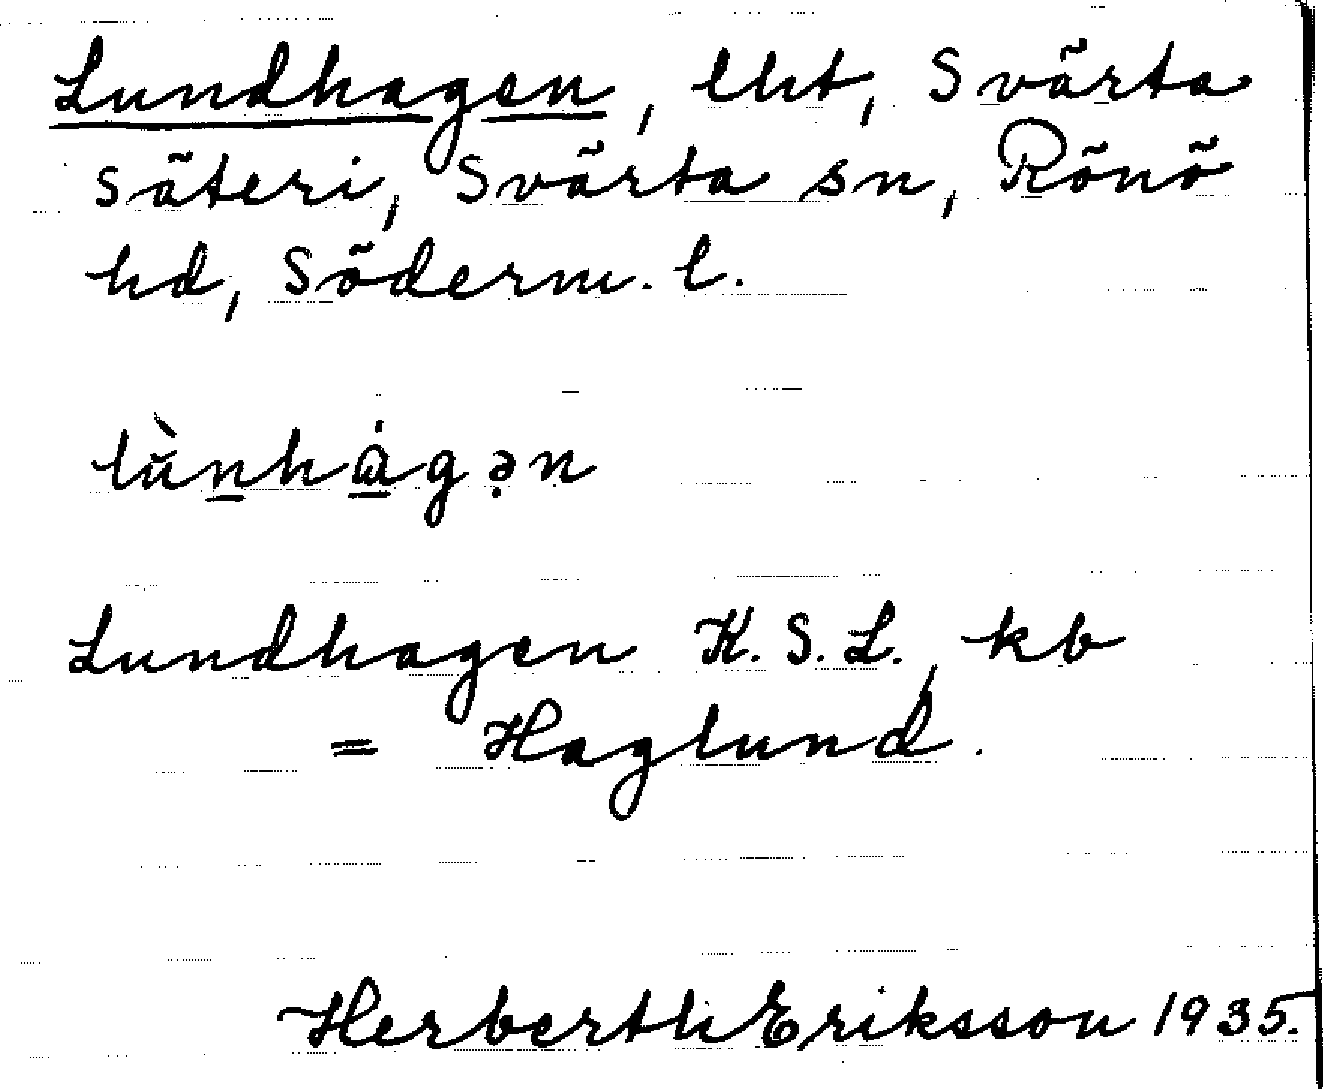 Lundhagen, lht, Svärta
säteri, Svärta sn, Rönö
hd, Söderm. l.
lùn̲hα̲̇gə̣n
Lundhagen K. S. L., kb
= Haglund.
Herberth Eriksson 1935.